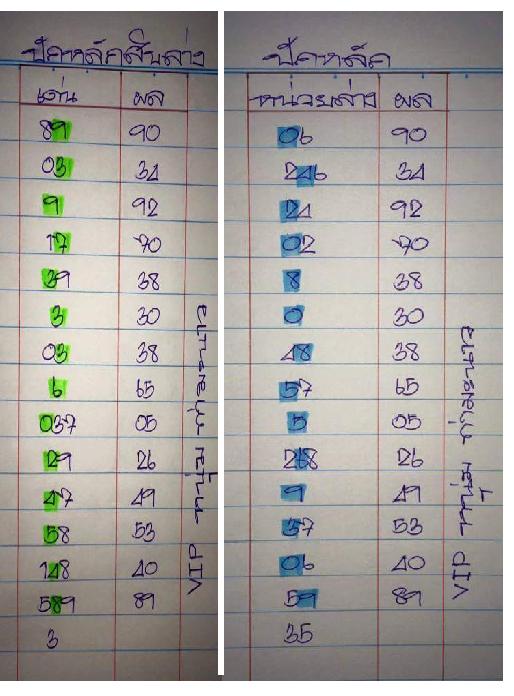 ปักหลักสิบล่าง
เด่น ผล
89 90
03 34
9 92
17 70
39 38
3 30
03 38
6 65
037 05
29 26
47 49
58 53
148 40
589 89
3
VIP
ปักหลัก
หน่วยล่าง ผล
06 90
246 34
24 92
02 70
8 38
0 30
48 38
57 65
5 05
268 26
9 49
37 53
06 40
59 89
35
VIP